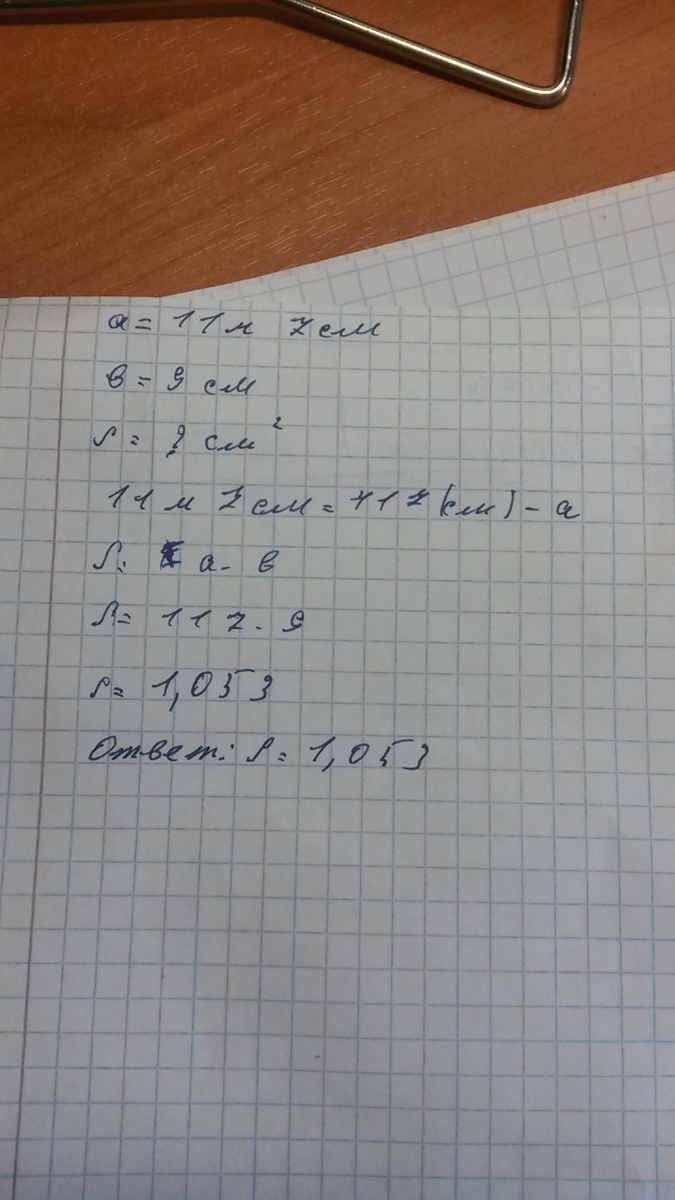 a = 11 м 7 см
в = 9 см
S = ? см²
11 м 7 см = 117 (см) - a
S = a · в
S = 117 · 9
S = 1,053
Ответ: S = 1,053